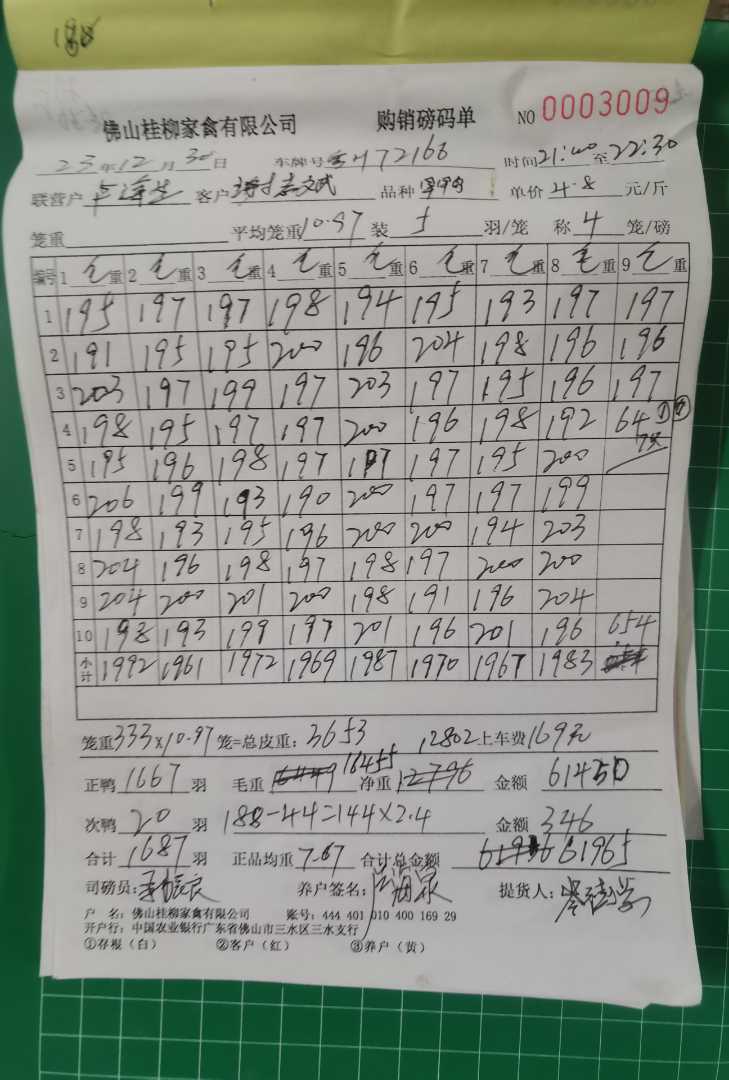 188
佛山桂柳家禽有限公司 购销磅码单 NO 0003009
23年12月30日 车牌号 72166 时间21:40至22:30
联营户 客户 品种 单价4.8元/斤
笼重 平均笼重10.97 装5羽/笼 称4笼/磅
编号 1毛重 2毛重 3毛重 4毛重 5毛重 6毛重 7毛重 8毛重 9毛重
1 195 197 197 198 194 195 193 197 197
2 191 195 195 200 196 204 198 196 196
3 203 197 199 197 203 197 195 196 197
4 198 195 197 197 200 196 198 192 64 ①
5 195 196 198 197 197 197 195 200 7只
6 206 199 193 190 200 197 197 199
7 198 193 195 196 200 200 194 203
8 204 196 198 197 198 197 200 200
9 204 200 201 200 198 191 196 204
10 198 193 199 197 201 196 201 196 654
小计 1992 1961 1972 1969 1987 1970 1967 1983
笼重333×10.97笼=总皮重：3653 12802 上车费169元
正鸭1667羽 毛重 16455 净重12796 金额61450
次鸭20羽 188-44=144×2.4 金额346
合计1687羽 正品均重7.67 合计总金额 61965
司磅员： 养户签名： 提货人：
户 名：佛山桂柳家禽有限公司 账号：444 401 010 400 169 29
开户行：中国农业银行广东省佛山市三水区三水支行
①存根（白） ②客户（红） ③养户（黄）